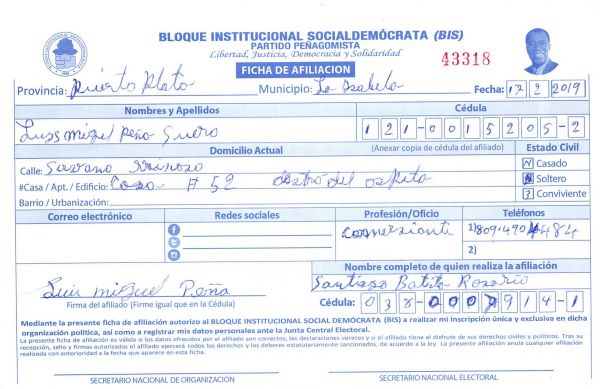 BLOQUE INSTITUCIONAL SOCIALDEMÓCRATA (BIS)
PARTIDO PEÑAGOMISTA
Libertad, Justicia, Democracia y Solidaridad
43318
FICHA DE AFILIACION
Provincia: Puerto Plata Municipio: La Isabela Fecha: 17 2 2019
Nombres y Apellidos Cédula
Luis Miguel Peña 121-0015205-2
Domicilio Actual (Anexar copia de cédula del afiliado) Estado Civil
Calle: Savana Casado
#Casa / Apt. / Edificio: Casa # 52 del Soltero
Barrio / Urbanización: 3 Conviviente
Correo electrónico Redes sociales Profesión/Oficio Teléfonos
comersiante 1) 809-490-4484
2)
Nombre completo de quien realiza la afiliación
Luis miguel Peña Santiago Batista Rosario
Firma del afiliado (Firme igual que en la Cédula) Cédula: 038-0007914-1
Mediante la presente ficha de afiliado autorizo al BLOQUE INSTITUCIONAL SOCIAL DEMÓCRATA (BIS) a realizar mi inscripción única y exclusiva en dicha
organización política, así como a registrar mis datos personales ante la Junta Central Electoral.
La presente ficha de afiliación es válida si los datos ofrecidos por el afiliado son correctos, las declaraciones veraces y si el afiliado tiene el disfrute de sus derechos civiles y políticos. Tras su
recepción, sello y firmas autorizadas el afiliado ejercerá todos los derechos y los deberes estatutariamente sancionados, de acuerdo a la ley. La presente afiliación anula cualquier afiliación
realizada con anterioridad a la fecha que aparece en esta ficha.
SECRETARIO NACIONAL DE ORGANIZACIÓN SECRETARIO NACIONAL ELECTORAL